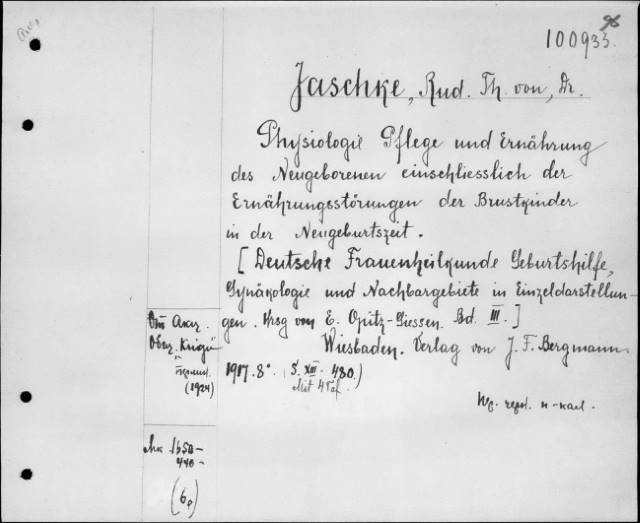 100933.
Jaschke, Rud. Th. von, Dr.
Physiologie Pflege und Ernährung
des Neugeborenen einschliesslich der
Ernährungsstörungen der Brustkinder
in der Neugeburtszeit.
[Deutsche Frauenheilkunde Geburtshilfe,
Gynäkologie und Nachbargebiete in Einzeldarstellun-
gen. Hrsg von E. Opitz-Giessen. Bd. III.]
Wiesbaden. Verlag von J. F. Bergmann
1917. 8°. (S. XII. 430.)
Mit 4 Taf.
(1924)
Mk 1650-
440-